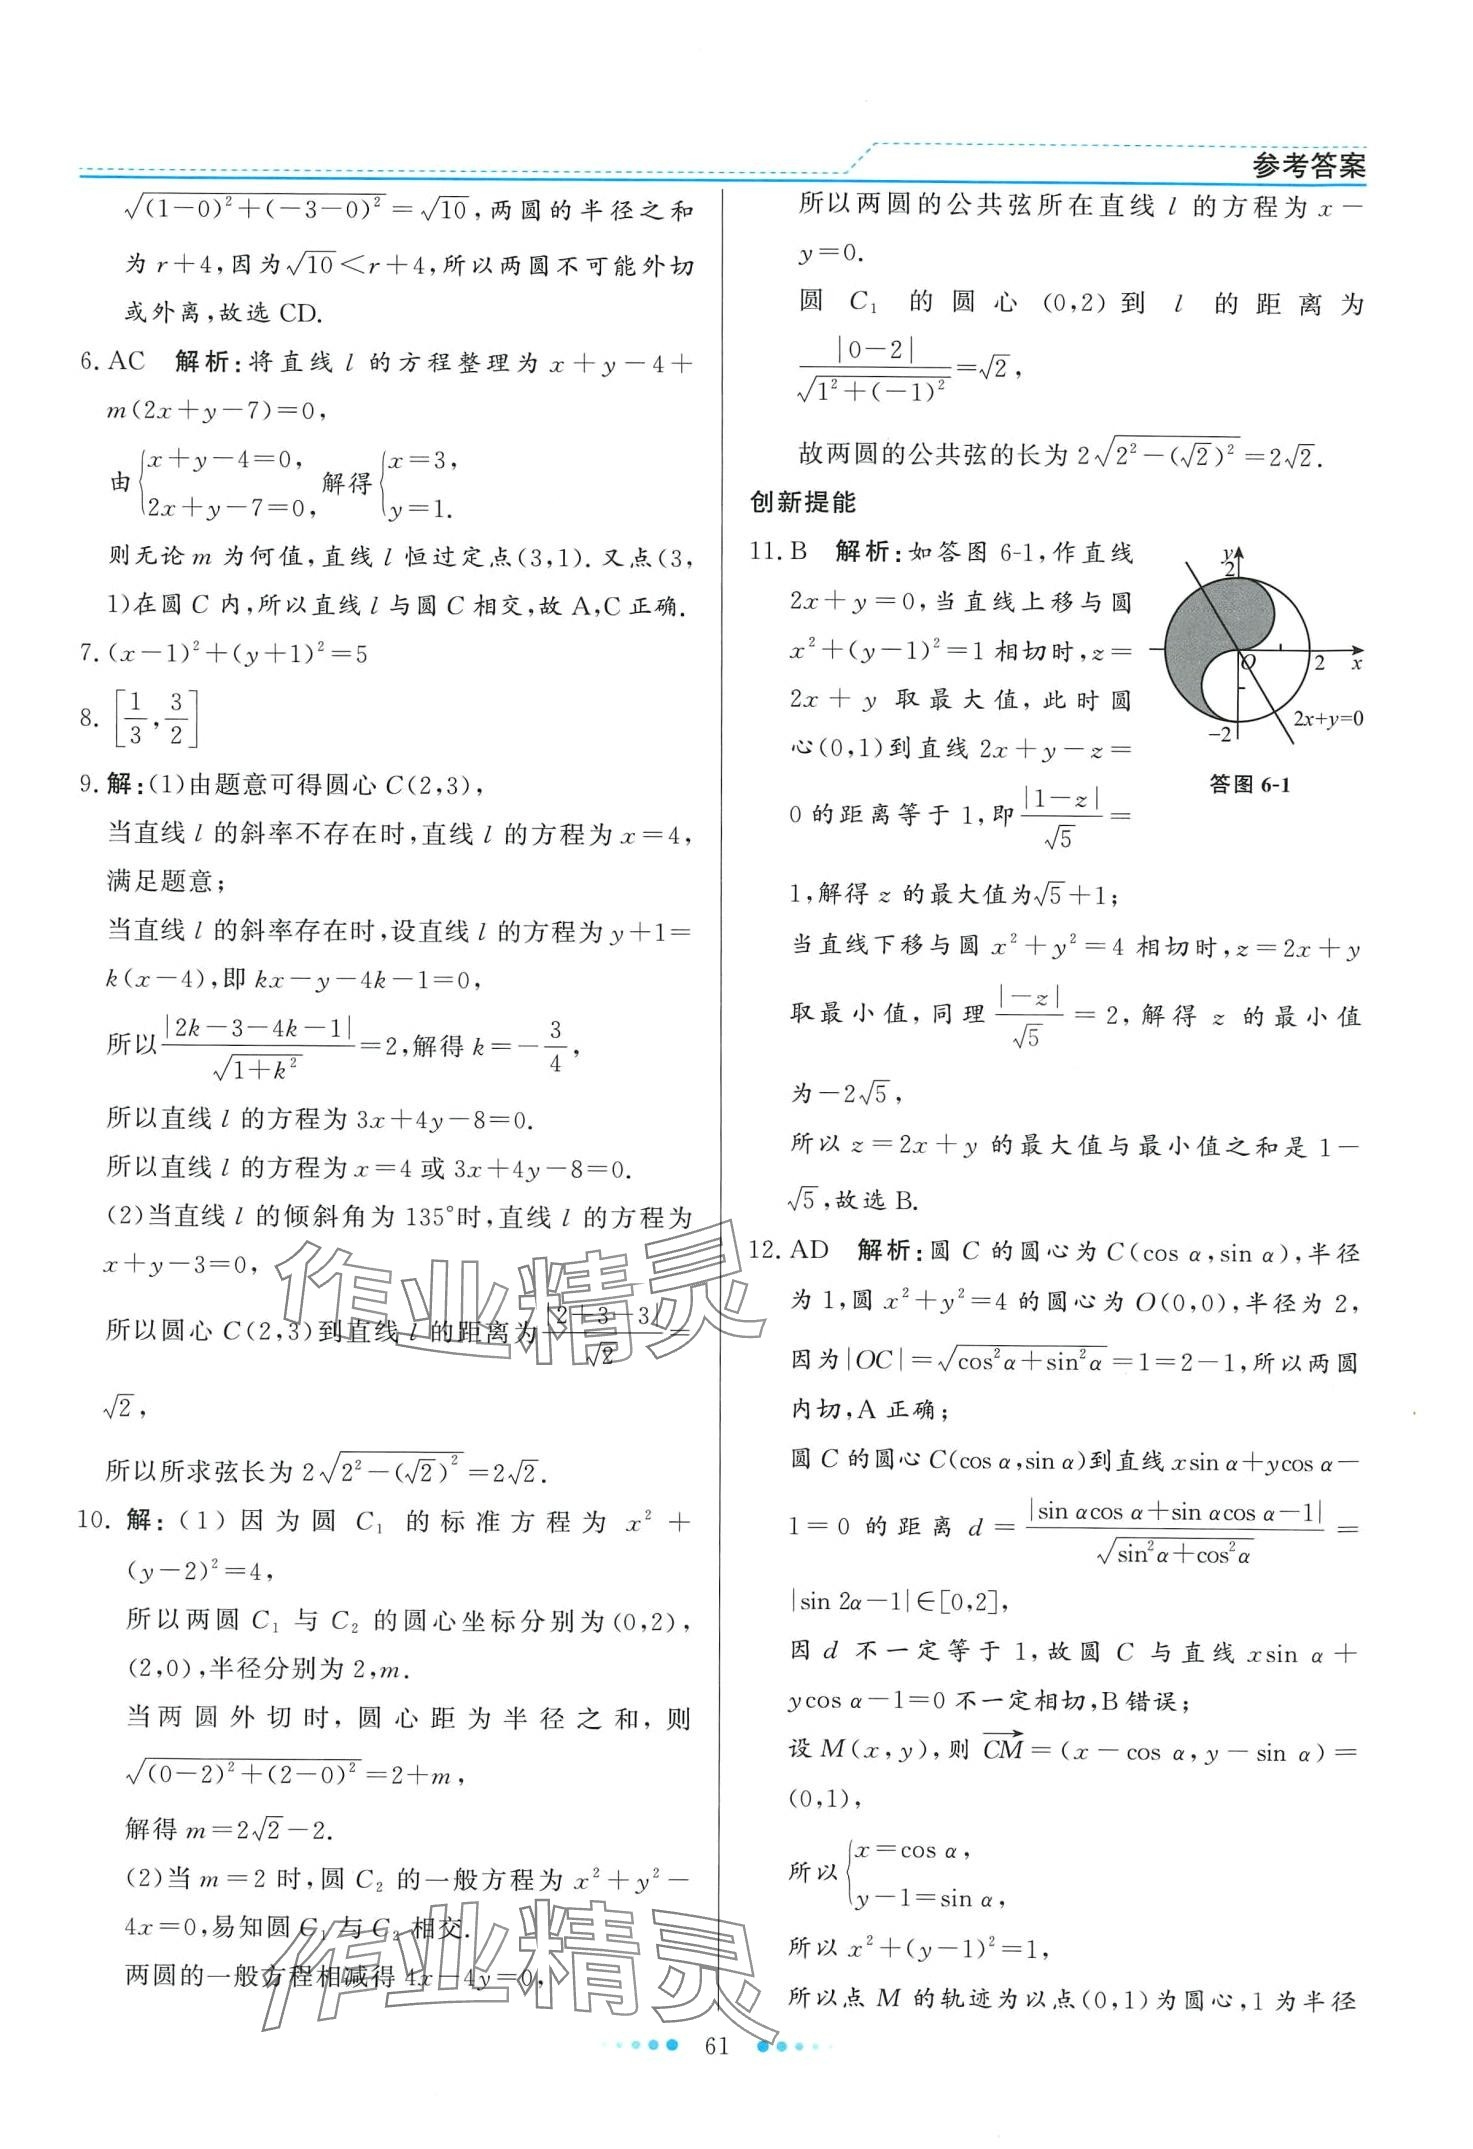 参考答案
√(1−0)²+(−3−0)²=√10,两圆的半径之和
为 r+4,因为√10<r+4,所以两圆不可能外切
或外离,故选 CD.
6. AC 解析:将直线 l 的方程整理为 x+y−4+
m(2x+y−7)=0,
由{x+y−4=0, 2x+y−7=0, 解得{x=3, y=1.
则无论 m 为何值,直线 l 恒过定点(3,1). 又点(3,
1)在圆 C 内,所以直线 l 与圆 C 相交,故 A,C 正确.
7. (x−1)²+(y+1)²=5
8. [1/3, 3/2]
9. 解:(1)由题意可得圆心 C(2,3),
当直线 l 的斜率不存在时,直线 l 的方程为 x=4,
满足题意;
当直线 l 的斜率存在时,设直线 l 的方程为 y+1=
k(x−4),即 kx−y−4k−1=0,
所以|2k−3−4k−1|/√1+k²=2,解得 k=−3/4,
所以直线 l 的方程为 3x+4y−8=0.
所以直线 l 的方程为 x=4 或 3x+4y−8=0.
(2)当直线 l 的倾斜角为 135°时,直线 l 的方程为
x+y−3=0,
所以圆心 C(2,3)到直线 l 的距离为|2+3−3|/√2=
√2,
所以所求弦长为 2√2²−(√2)²=2√2.
10. 解:(1)因为圆 C₁ 的标准方程为 x²+
(y−2)²=4,
所以两圆 C₁ 与 C₂ 的圆心坐标分别为(0,2),
(2,0),半径分别为 2,m.
当两圆外切时,圆心距为半径之和,则
√(0−2)²+(2−0)²=2+m,
解得 m=2√2−2.
(2)当 m=2 时,圆 C₂ 的一般方程为 x²+y²−
4x=0,易知圆 C₁ 与 C₂ 相交.
两圆的一般方程相减得 4x−4y=0,
所以两圆的公共弦所在直线 l 的方程为 x−
y=0.
圆 C₁ 的圆心(0,2)到 l 的距离为
|0−2|/√1²+(−1)²=√2,
故两圆的公共弦的长为 2√2²−(√2)²=2√2.
创新提能
11. B 解析:如答图 6-1,作直线
2x+y=0,当直线上移与圆
x²+(y−1)²=1 相切时,z=
2x+y 取最大值,此时圆
心(0,1)到直线 2x+y−z=
0 的距离等于 1,即|1−z|/√5=
y
2
O
2
x
−2
2x+y=0
答图 6-1
1,解得 z 的最大值为√5+1;
当直线下移与圆 x²+y²=4 相切时,z=2x+y
取最小值,同理|−z|/√5=2,解得 z 的最小值
为−2√5,
所以 z=2x+y 的最大值与最小值之和是 1−
√5,故选 B.
12. AD 解析:圆 C 的圆心为 C(cos α,sin α),半径
为 1,圆 x²+y²=4 的圆心为 O(0,0),半径为 2,
因为|OC|=√cos²α+sin²α=1=2−1,所以两圆
内切,A 正确;
圆 C 的圆心 C(cos α,sin α)到直线 xsin α+ycos α−
1=0 的距离 d=|sin αcos α+sin αcos α−1|/√sin²α+cos²α=
|sin 2α−1|∈[0,2],
因 d 不一定等于 1,故圆 C 与直线 xsin α+
ycos α−1=0 不一定相切,B 错误;
设 M(x,y),则 CM→=(x−cos α,y−sin α)=
(0,1),
所以{x=cos α, y−1=sin α,
所以 x²+(y−1)²=1,
所以点 M 的轨迹为以点(0,1)为圆心,1 为半径
61
作业精灵
作业精灵